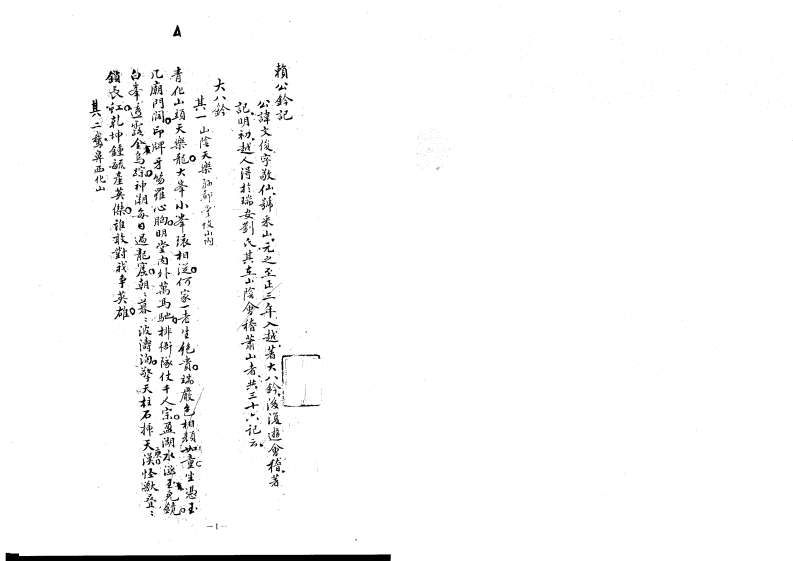 賴公鈐記
公諱文俊字敬仙號釆山元之至正三年入越著大八鈐後復遊會稽著
記明初越人得於瑞安劉氏其在山陰會稽蕭山者共三十六記云
大八鈐
其一山陰天樂 山內
青化山頭天樂龍大峯小峯環相從何家一老生絕貴端嚴色相顏如童坐憑玉
几廟門闊印牌牙笏羅心胸明堂內外萬馬馳排衙隊仗千人宗盈湖水涵玉兔鏡
白峯透露金烏踪神潮每日過龍窟朝朝暮暮波濤洶擎天柱石插天漢怪獸
鎖長江乾坤鍾毓產英傑誰敢對我爭英雄
其二 鼻西化山
—1—